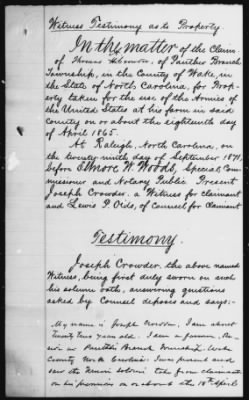 Witness Testimony as to Property
In the matter of the Claim
of Thomas, of Panther Branch
Township, in the County of Wake, in
the State of North Carolina, for Prop-
erty taken for the use of the Armies of
the United States at his farm in said
County on or about the eighteenth day
of April 1865.
At Raleigh, North Carolina, on
the twenty ninth day of September 1871,
before Elmore W. Woods, Special Com-
missioner and Notary Public Present
Joseph Crowder, a Witness for Claimant
and Lewis P. Olds, of Counsel for Claimant
Testimony.
Joseph Crowder, the above named
Witness, being first duly sworn on such
his solemn oath, answering questions
asked by Counsel deposes and says:-
My name is Joseph Crowder, I am about
Twenty two years old. I am a farmer,
in Panther Branch Township, Wake
County North Carolina. I was present and
saw the Union Soldiers take from claimant
on his premises on or about the 18th April